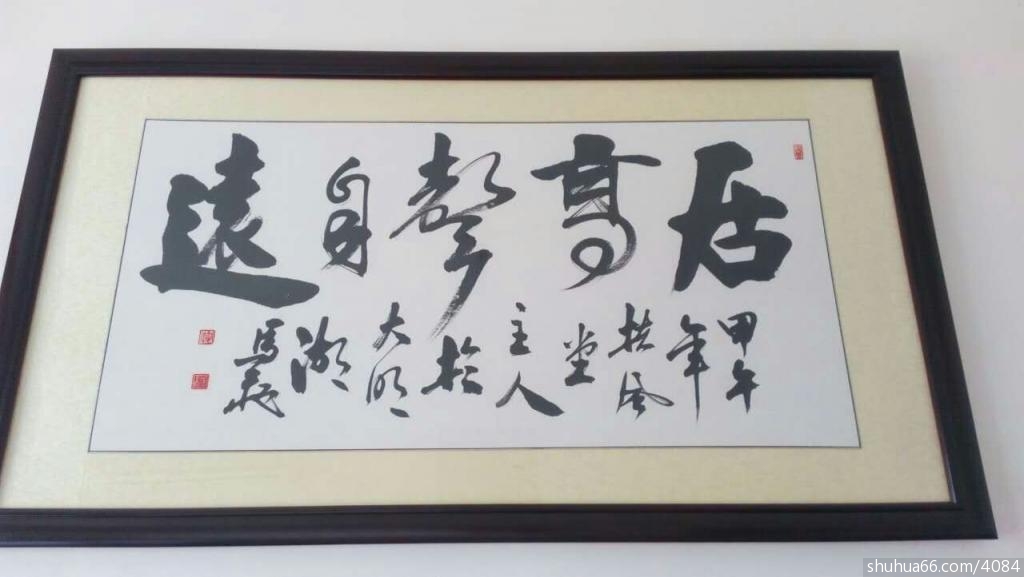 居高聲自遠
甲午
年
扶風
堂
主人
於
大明
湖
馬
shuhua66.com/4084